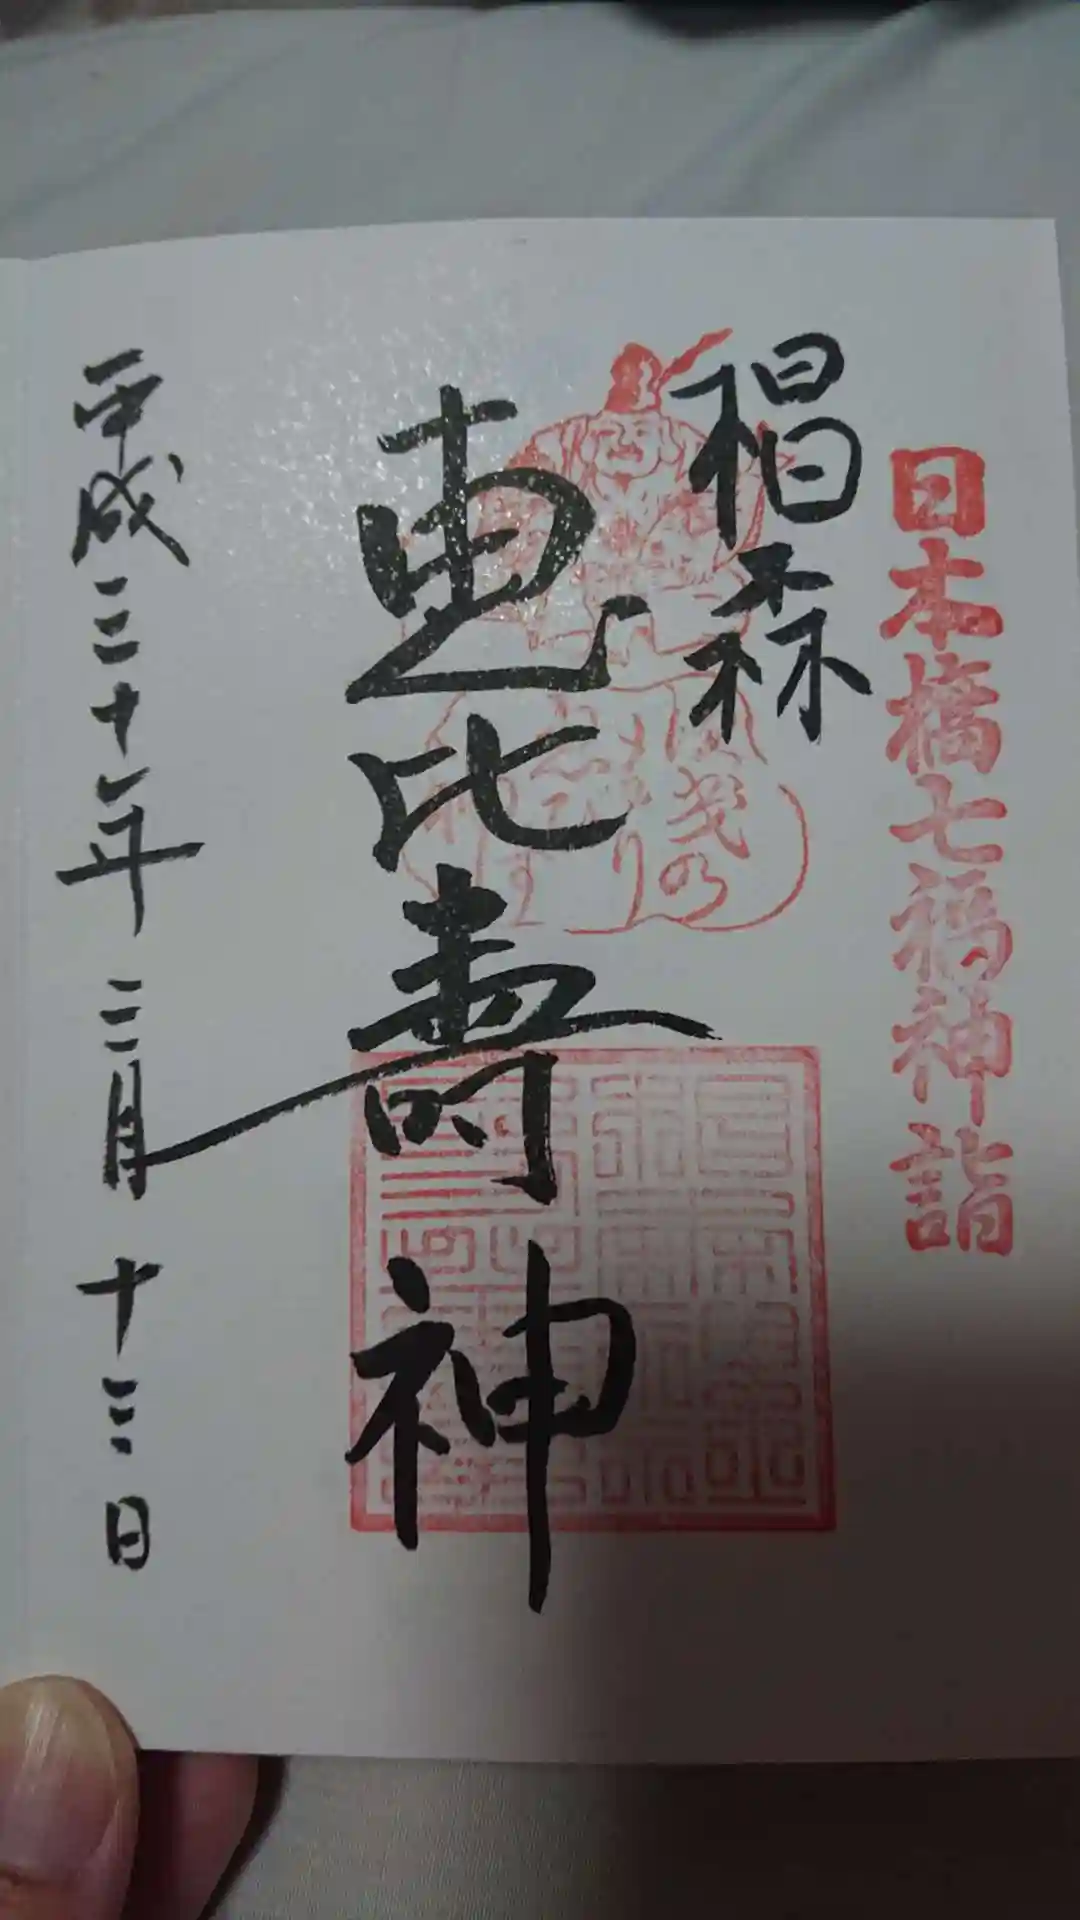 日本橋七福神詣
椙森
恵比寿神
平成三十年二月十三日